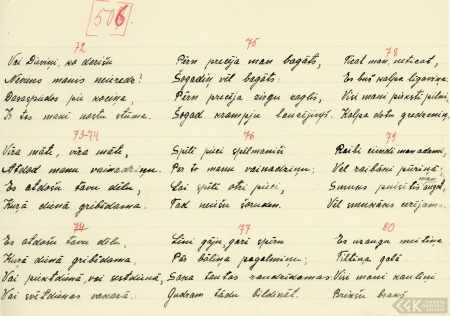 [506]
72
Vai Dieviņ, ko darīšu
Nevens manis neieredz?
Dasaspiedos pie kociņa,
Tas mani nostu stūma.
73-74
Vīra māte, vīra māte,
Atdod manu vainadziņu.
Es atdošu tavu dēlu,
Kuŗā dienā gribēdama.
74
Es atdošu tavu dēlu,
Kuŗā dienā gribēdama.
Vai piektdienā, vai sestdienā,
Vai svētdienas vakarā.
75
Pērn precēja man bagāts,
Šogadiņ vēl bagāts.
Pērn precēja zirgu zaglis,
Šogad krampju
76
Spīti pieci spēlmaniši
Pēr šo manu vainadziņu;
Lai spīti otri pieci,
Tad neiešu šoruden.
77
Līni gāju, gaŗi spēru
Pēr bāliņa pagalmiņu;
Saka tautas raudzīdamas:
Gudram tādu bildināt.
78
man, neticat,
Es būš kalpa līgaviņa.
Visi mani pirksti pilni
Kalpa dotu gredzeniņ.
79
Raibi cimdi man adami,
Vēl raibāki pūriņā;
Smuks puisītis man auga,
Vēl smukāks arājams.
80
Es uzaugu meitiņa
Tiltiņa galā.
Visi mani kauliņi
Brīkšu brakš